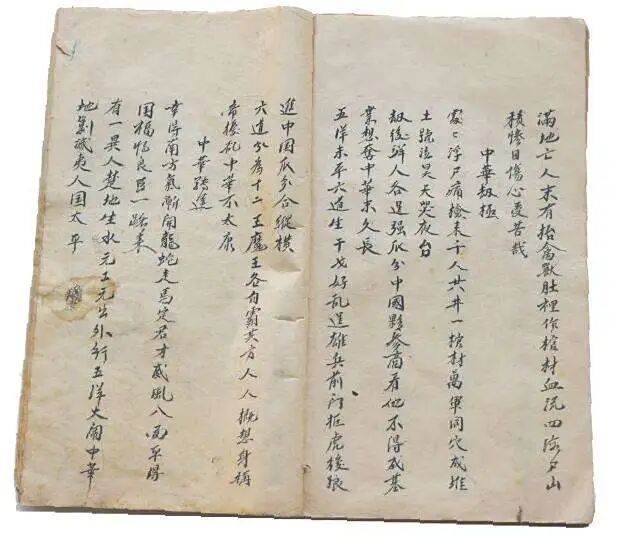 滿地亡人未有抬禽獸肚裡作棺材血流四海尸山
積慘目傷心憂苦哉
中華极極
處々浮尸痛撿来千人共井一棺材萬軍同穴成堆
土號泣昊天哭夜台
刼後鮮人各逞强瓜分中國夥参商看他不得成基
業想奪中華未久長
五洋未年六道生干戈好乱逞雄兵前門拒虎後狼
進中国瓜分合縱橫
六道分為十二王魔王各自霸其方人人擬想身稱
帝擾乱中華不太康
中華
幸得南方氣漸開龍蛇走馬定君才威風八面平得
国福恃良臣一路来
有一異人楚地生水元王元出外行五洋大鬧中華
地剿滅夷人国太平